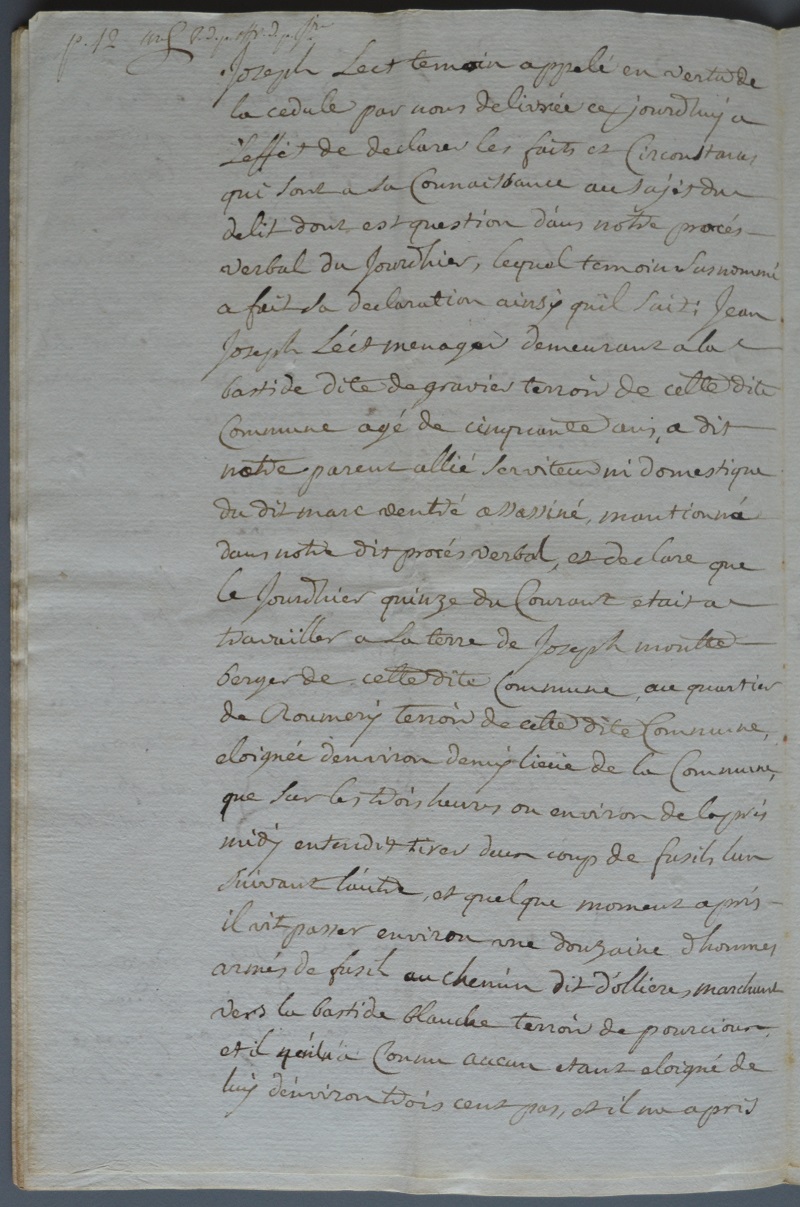 p. 12
Joseph Lect temoin appelé en vertu de
la cedule par nous delivrée ce jourdhuj a
L'effet de declarer les faits et Circonstances
qui sont a sa Connaissance au sujet du
delit dont est question dans notre procés
verbal du Jourdhier, lequel temoin susnommé
a fait sa declaration ainsy quil suit: Jean
Joseph Léct menager demeurant a la
bastide dite de gravier terroir de cette dite
Commune agé de cinquante ans, a dit
netre parent allié serviteur ni domestique
du dit marc assassiné, mantionné
dans notre dit procés verbal, et declare que
le Jourdhier quinze du Courant etait a
travailler a la terre de Joseph moutte
berger de cette dite Commune, au quartier
de Roumery terroir de cette dite Commune,
eloignée denviron demy lieüe de la Commune,
que sur les trois heures ou environ de laprés
midy entendit tirer deux coup de fusils lun
suivant lautre, et quelque moment aprés
il vit passer environ une douzaine dhommes
armés de fusil au chemin dit dóllieres, marchant
vers la bastide blanche terroir de pourcioux
et il Connu aucun etant eloigné de
luy dénviron trois cent pas, et il na apris